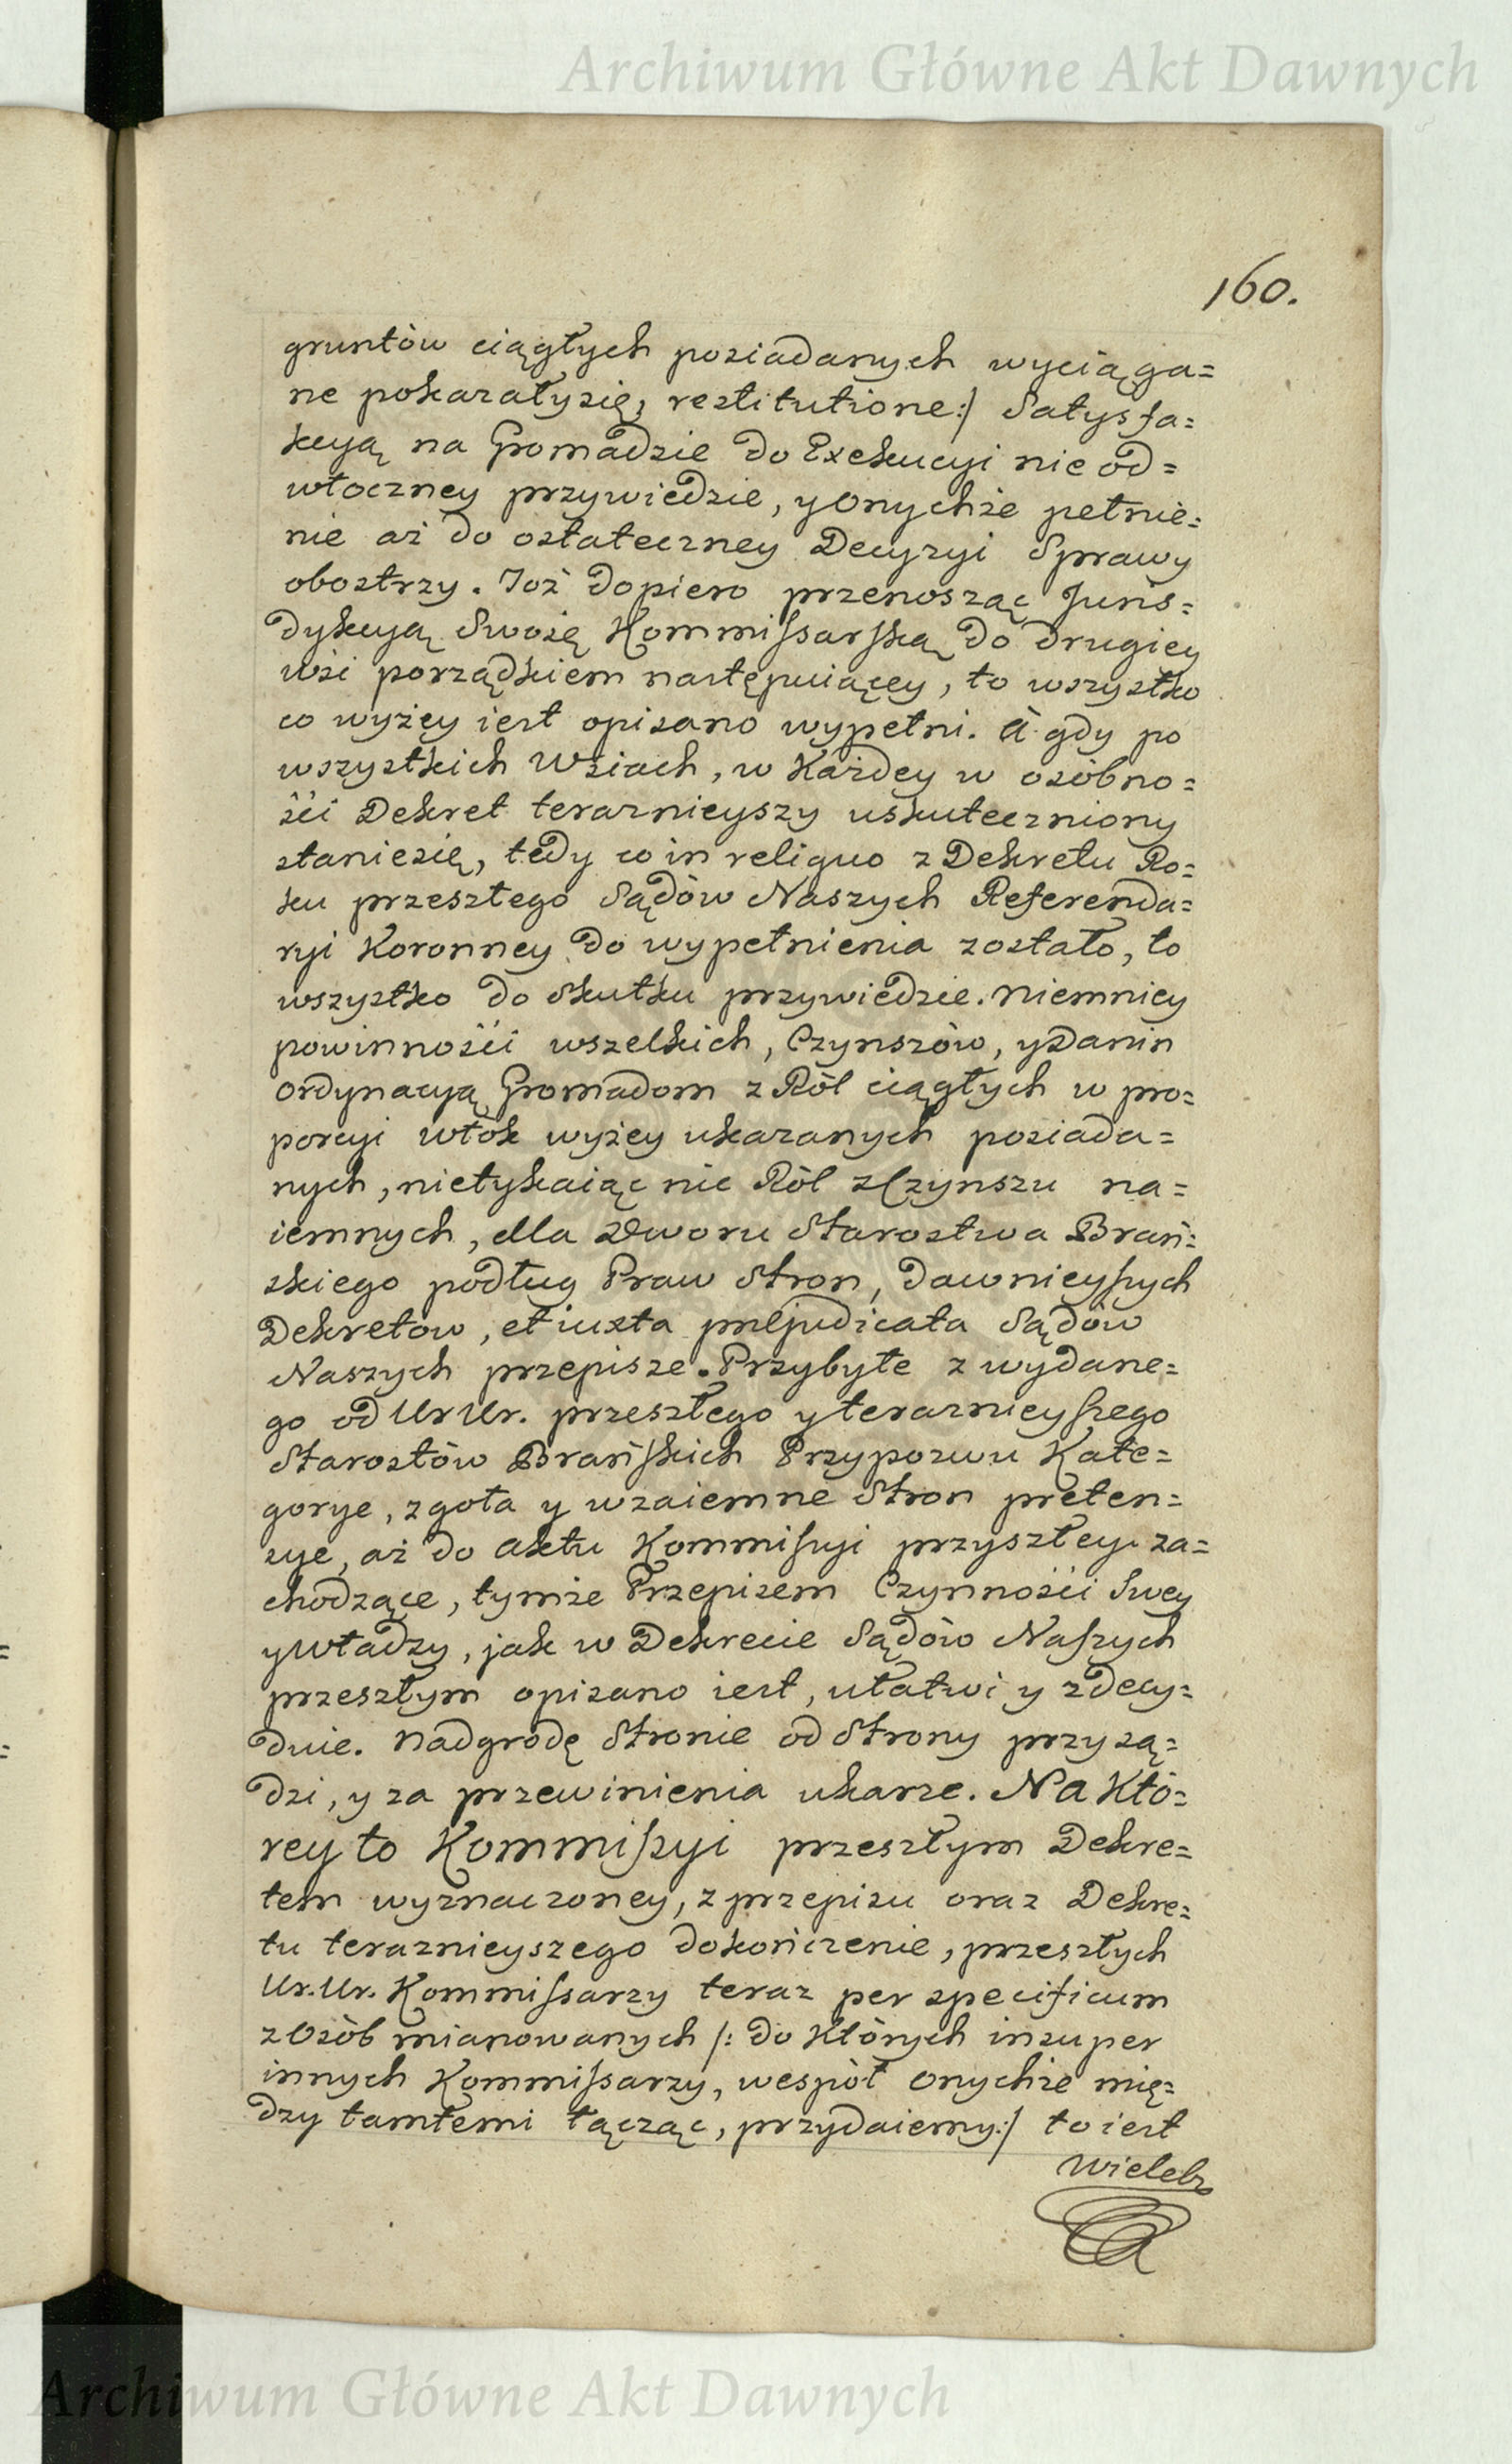 Archiwum Główne Akt Dawnych
160.
gruntów ciągłych posiadanych wyciąga=
ne pokazałysię, restitutione:/ Satysfa=
kcyą na Gromadzie do Exekucyi nie od=
włoczney przywiedzie, y Onychże pełnie=
nie aż do ostateczney Decyzyi Sprawy
obostrzy. Toż dopiero przenosząc Juris=
dykcyą Swoię Kommissarską do drugiey
wsi porządkiem następuiącey, to wszystko
co wyżey iest opisano wypełni. A gdy po
wszystkich Wsiach, w Każdey w osóbno=
ści Dekret teraznieyszy uskuteczniony
staniesię, tedy co in reliquo z Dekretu Ro=
ku przeszłego Sądów Naszych Referenda=
ryi Koronney do wypełnienia zostało, to
wszystko do Skutku przywiedzie. Niemniey
powinności wszelkich, Czynszów, y Danin
Ordynacyą Gromadom z Ról ciągłych w pro=
porcyi włok wyżey ukazanych posiada=
nych, nietykaiąc nic Ról z Czynszu na=
iemnych, dla Dworu Starostwa Brań=
skiego podług Praw Stron, dawnieyszych
Dekretow, et iuxta præjudicata Sądów
Naszych przepisze. Przybyłe z wydane=
go od Ur Ur. przeszłego y teraznieyszego
Starostów Brańskich Przypozwu Kate=
gorye, zgoła y wzaiemne Stron preten=
sye, aż do aktu Kommissyi przyszłey za=
chodzące, tymże Przepisem Czynności Swey
y Władzy, jak w Dekrecie Sądów Naszych
przeszłym opisano iest, ułatwi y zdecy=
duie. Nadgrodę Stronie od Strony przysą=
dzi, y za przewinienia ukarze. Na Któ=
rey to Kommissyi przeszłym Dekre=
tem wyznaczoney, z przepisu oraz Dekre=
tu teraznieyszego dokończenie, przeszłych
Ur. Ur. Kommissarzy teraz per specificum
z Osób mianowanych /: do Których insuper
innych Kommissarzy, wespół Onychże mię=
dzy tamtemi łącząc, przydaiemy:/ to iest
Wieleb
Archiwum Główne Akt Dawnych